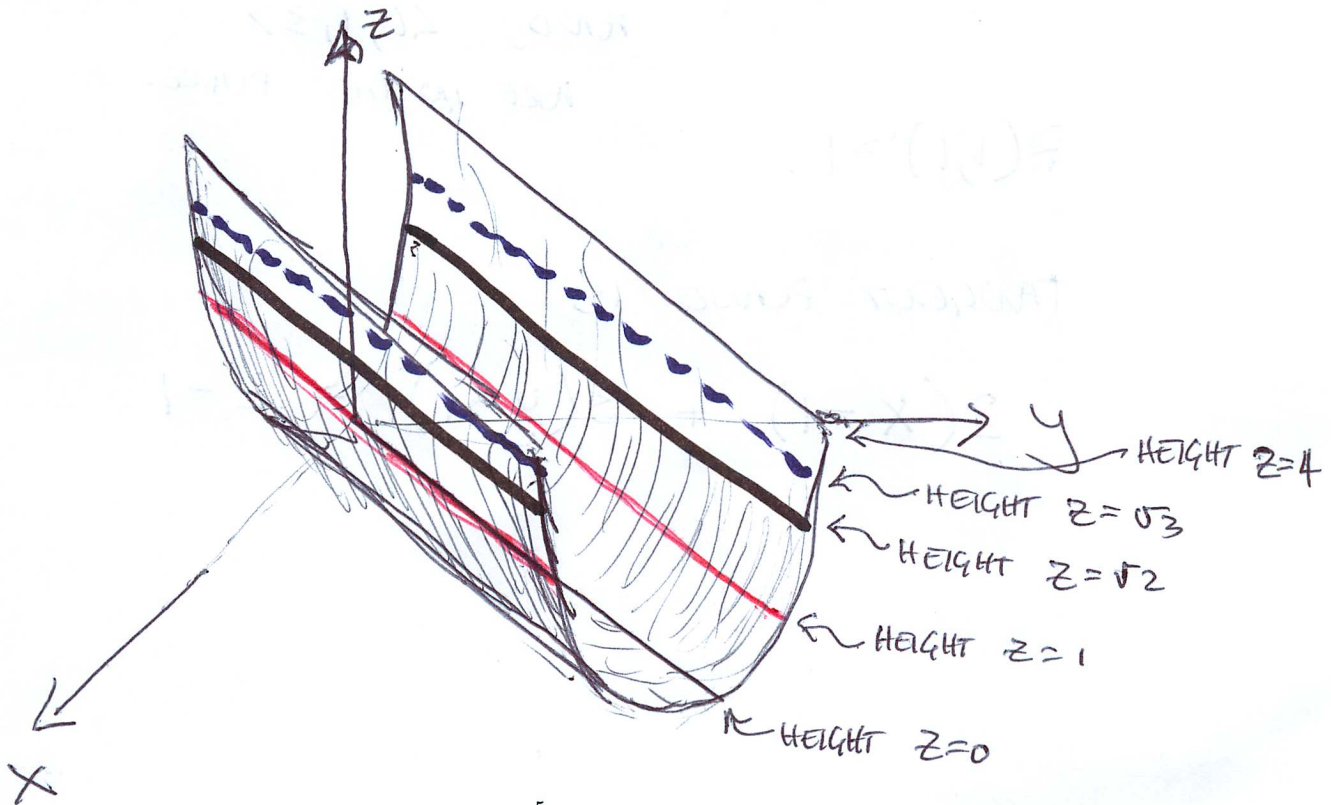 Z
y
HEIGHT Z=4
HEIGHT Z=√3
HEIGHT Z=√2
HEIGHT Z=1
HEIGHT Z=0
X